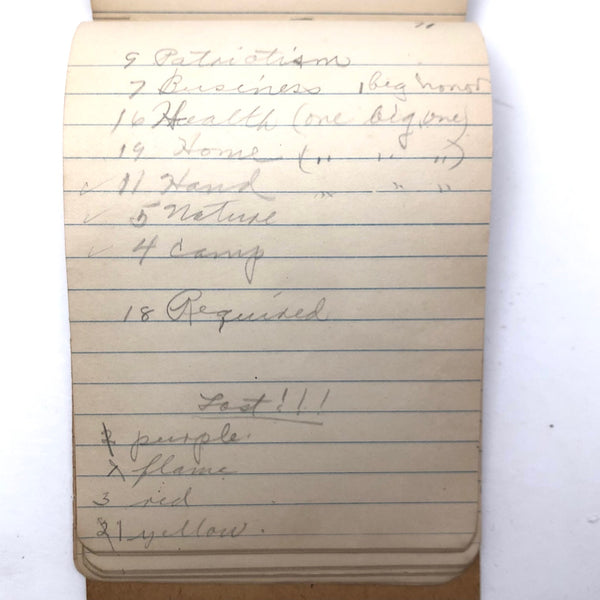 9 Patriotism
7 Business 1 big honor
16 Health (one big one)
19 Home (" " ")
✓ 11 Hand " " "
✓ 5 Nature
✓ 4 Camp
18 Required
Lost!!!
purple.
flame
3 red
1 yellow.